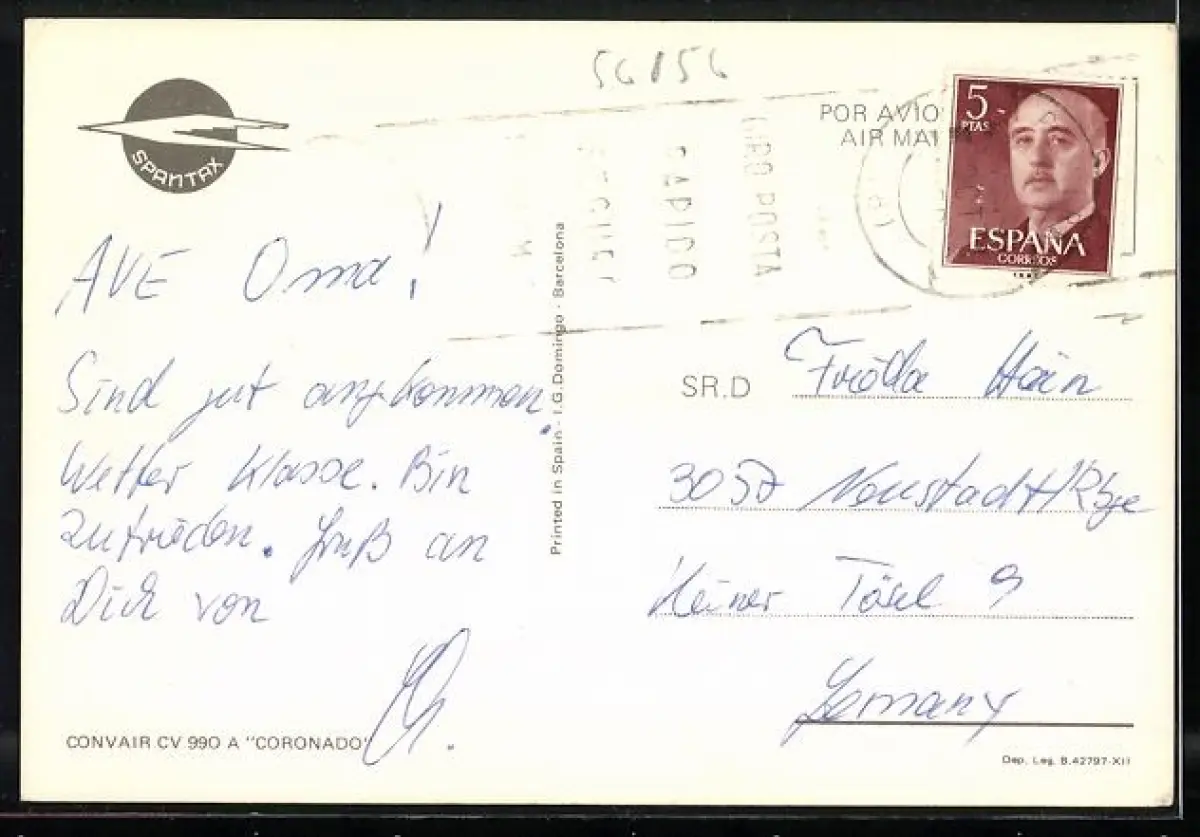 56156
SPANTAX
POR AVIO
AIR MAI
5
PTAS
ESPAÑA
CORREOS
GIRO POSTA
RAPIDO
AVE Oma!
Sind gut angekommen.
Wetter Klasse. Bin
zufrieden. Gruß an
Dich von
SR.D
Frieda Hein
3057 Neustadt/Rbge
Kleiner Tösel 9
Germany
Printed in Spain - I.G. Domingo - Barcelona
CONVAIR CV 990 A "CORONADO"
Dep. Leg. B.42797-XII